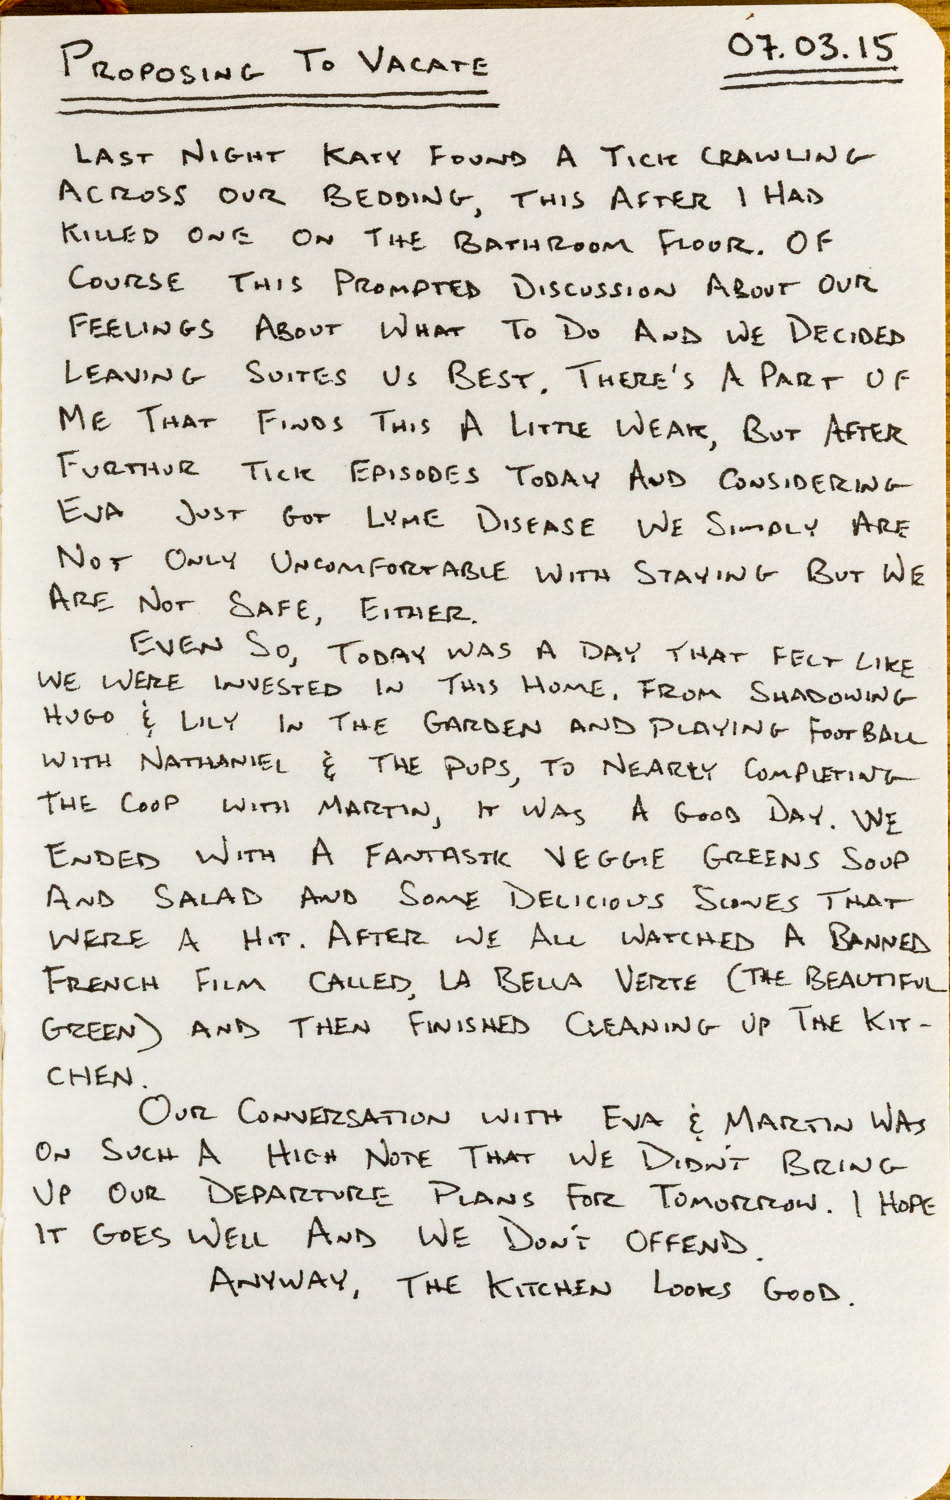 PROPOSING TO VACATE
07.03.15
LAST NIGHT KATY FOUND A TICK CRAWLING
ACROSS OUR BEDDING, THIS AFTER I HAD
KILLED ONE ON THE BATHROOM FLOUR. OF
COURSE THIS PROMPTED DISCUSSION ABOUT OUR
FEELINGS ABOUT WHAT TO DO AND WE DECIDED
LEAVING SUITES US BEST. THERE'S A PART OF
ME THAT FINDS THIS A LITTLE WEAK, BUT AFTER
FURTHUR TICK EPISODES TODAY AND CONSIDERING
EVA JUST GOT LYME DISEASE WE SIMPLY ARE
NOT ONLY UNCOMFORTABLE WITH STAYING BUT WE
ARE NOT SAFE, EITHER.
EVEN SO, TODAY WAS A DAY THAT FELT LIKE
WE WERE INVESTED IN THIS HOME. FROM SHADOWING
HUGO & LILY IN THE GARDEN AND PLAYING FOOTBALL
WITH NATHANIEL & THE PUPS, TO NEARLY COMPLETING
THE COOP WITH MARTIN, IT WAS A GOOD DAY. WE
ENDED WITH A FANTASTIC VEGGIE GREENS SOUP
AND SALAD AND SOME DELICIOUS SCONES THAT
WERE A HIT. AFTER WE ALL WATCHED A BANNED
FRENCH FILM CALLED, LA BELLA VERTE (THE BEAUTIFUL
GREEN) AND THEN FINISHED CLEANING UP THE KIT-
CHEN.
OUR CONVERSATION WITH EVA & MARTIN WAS
ON SUCH A HIGH NOTE THAT WE DIDN'T BRING
UP OUR DEPARTURE PLANS FOR TOMORROW. I HOPE
IT GOES WELL AND WE DON'T OFFEND.
ANYWAY, THE KITCHEN LOOKS GOOD.